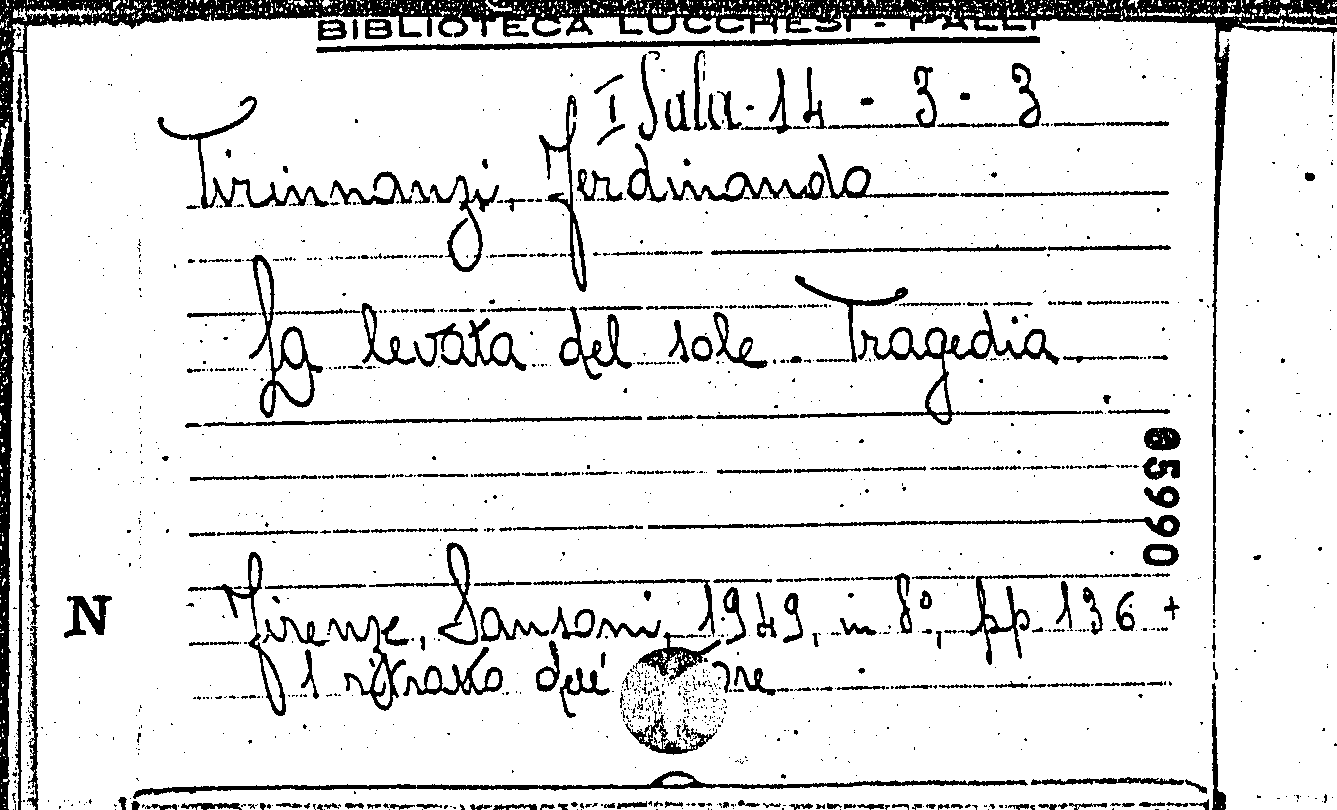 BIBLIOTECA LUCCHESI - PALLI
I Sala - 14 - 3 - 3
Tirinnanzi, Ferdinando
La levata del sole. Tragedia.
65990
N
Firenze, Sansoni, 1949, in 8°, pp 136 +
1 ritratto